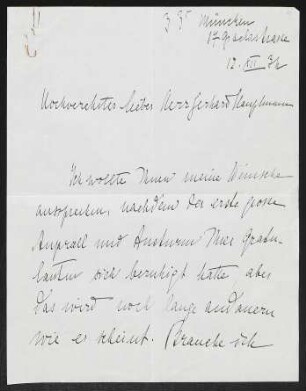 München
12. XII 32
Hochverehrter lieber Herr Gerhard Hauptmann
Ich wollte Ihnen meine Wünsche
aussprechen, nachdem der erste grosse
Anprall und Ansturm Ihrer Gratu-
lanten sich beruhigt hätte, aber
das wird noch lange andauern
wie es scheint. Brauche ich